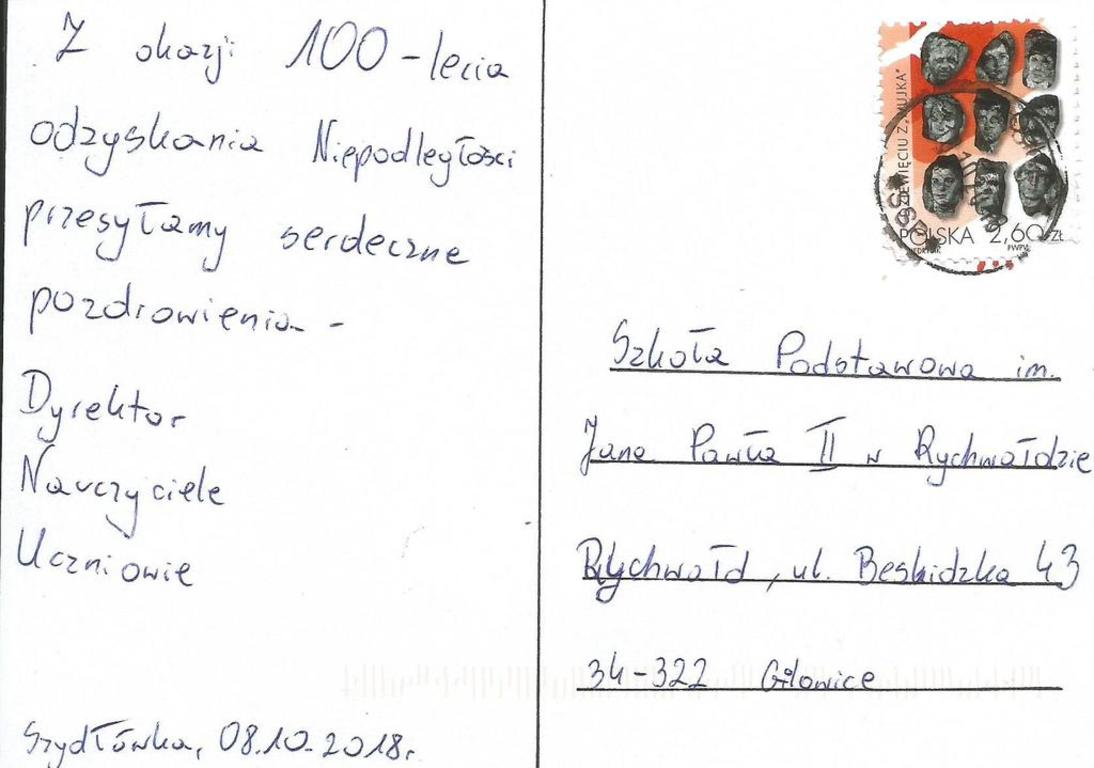 Z okazji 100-lecia
odzyskania Niepodległości
przesyłamy serdeczne
pozdrowienia -
Dyrektor
Nauczyciele
Uczniowie
Szydłówka, 08.10.2018r.
"DZIEWIĘCIU Z „WUJKA"
POLSKA 2,60 ZŁ
PWPW
Szkoła Podstawowa im.
Jana Pawła II w Rychwałdzie
Rychwałd, ul. Beskidzka 43
34-322 Gilowice